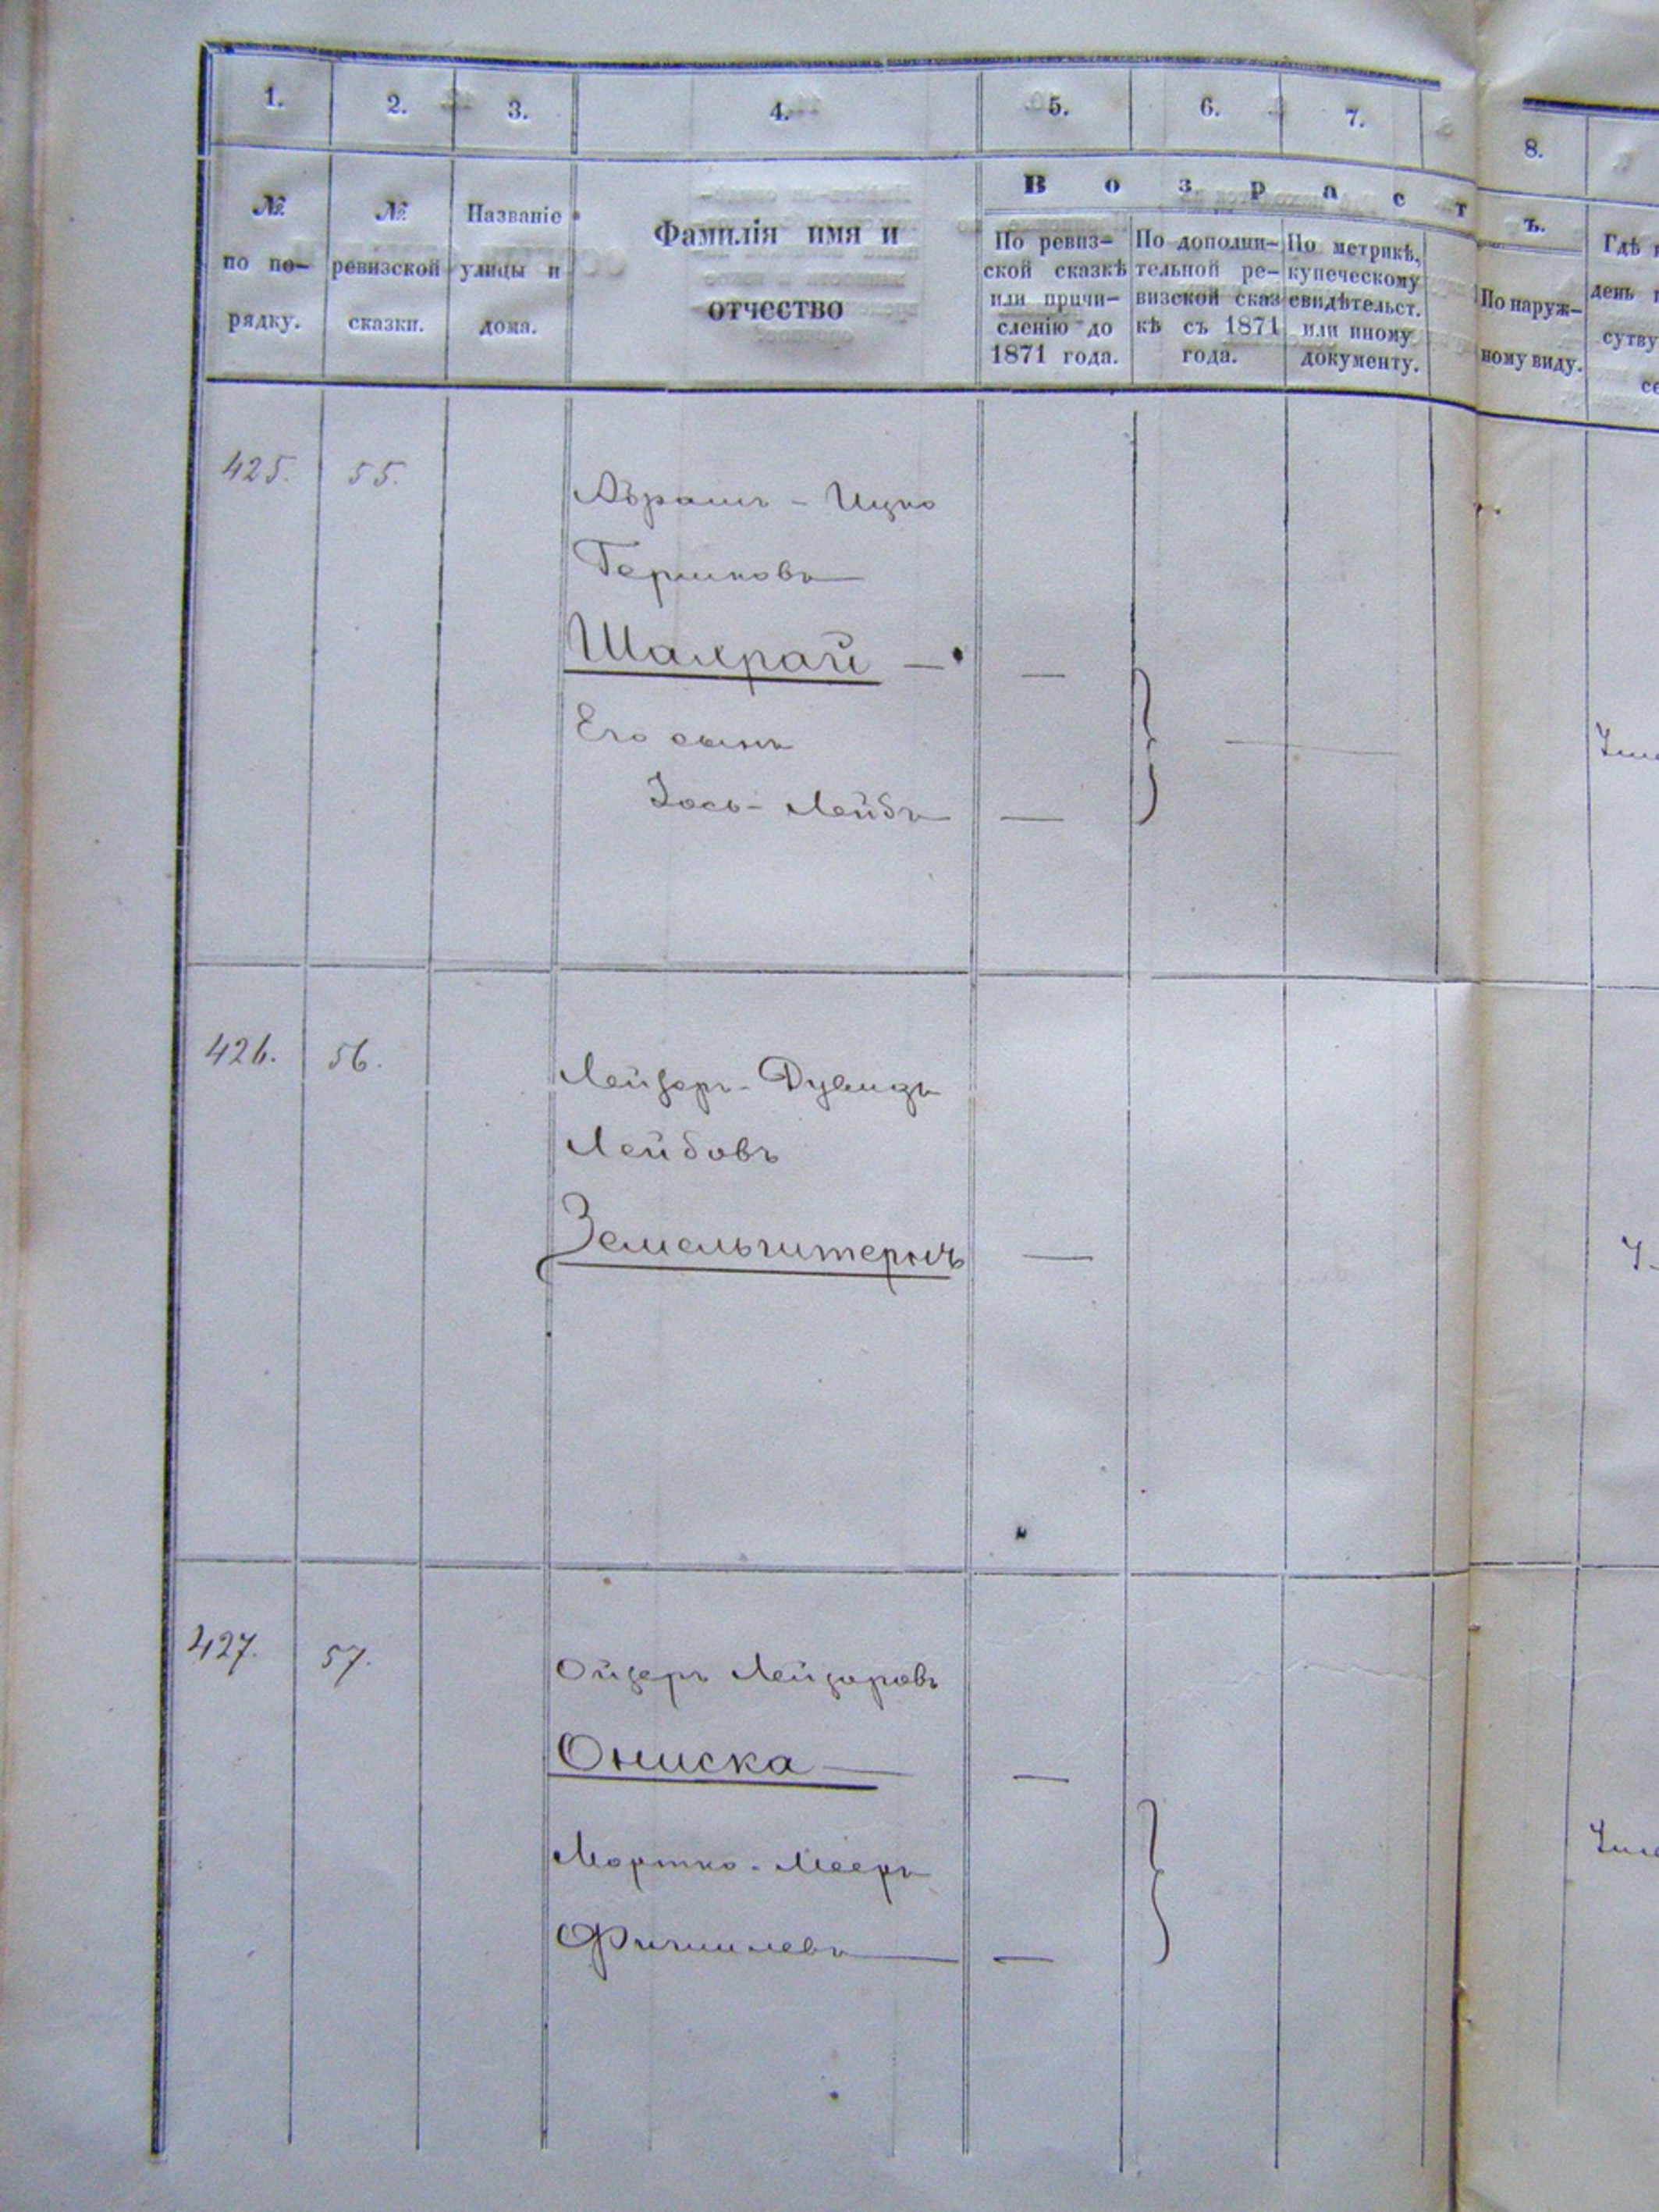 1. 2. 3. 4. 5. 6. 7. 8.
№ по по-рядку.
№ ревизской сказки.
Названіе улицы и дома.
Фамилія имя и
отчество
Возрастъ.
По ревиз-
ской сказкѣ
или причи-
сленію до
1871 года.
По дополни-
тельной ре-
визской сказ
кѣ съ 1871
года.
По метрикѣ,
купеческому
свидѣтельст.
или иному
документу.
По наруж-
ному виду.
Гдѣ
день
сутву
425. 55. Абрамъ - Ицко
Гершковъ
Шахрай —
Его сынъ
Іось - Лейбъ
426. 56. Лейзеръ - Дувидъ
Лейбовъ
427. 57. Ойзеръ Лейзеровъ
Ониска —
Мортко - Мееръ
Фишилевъ